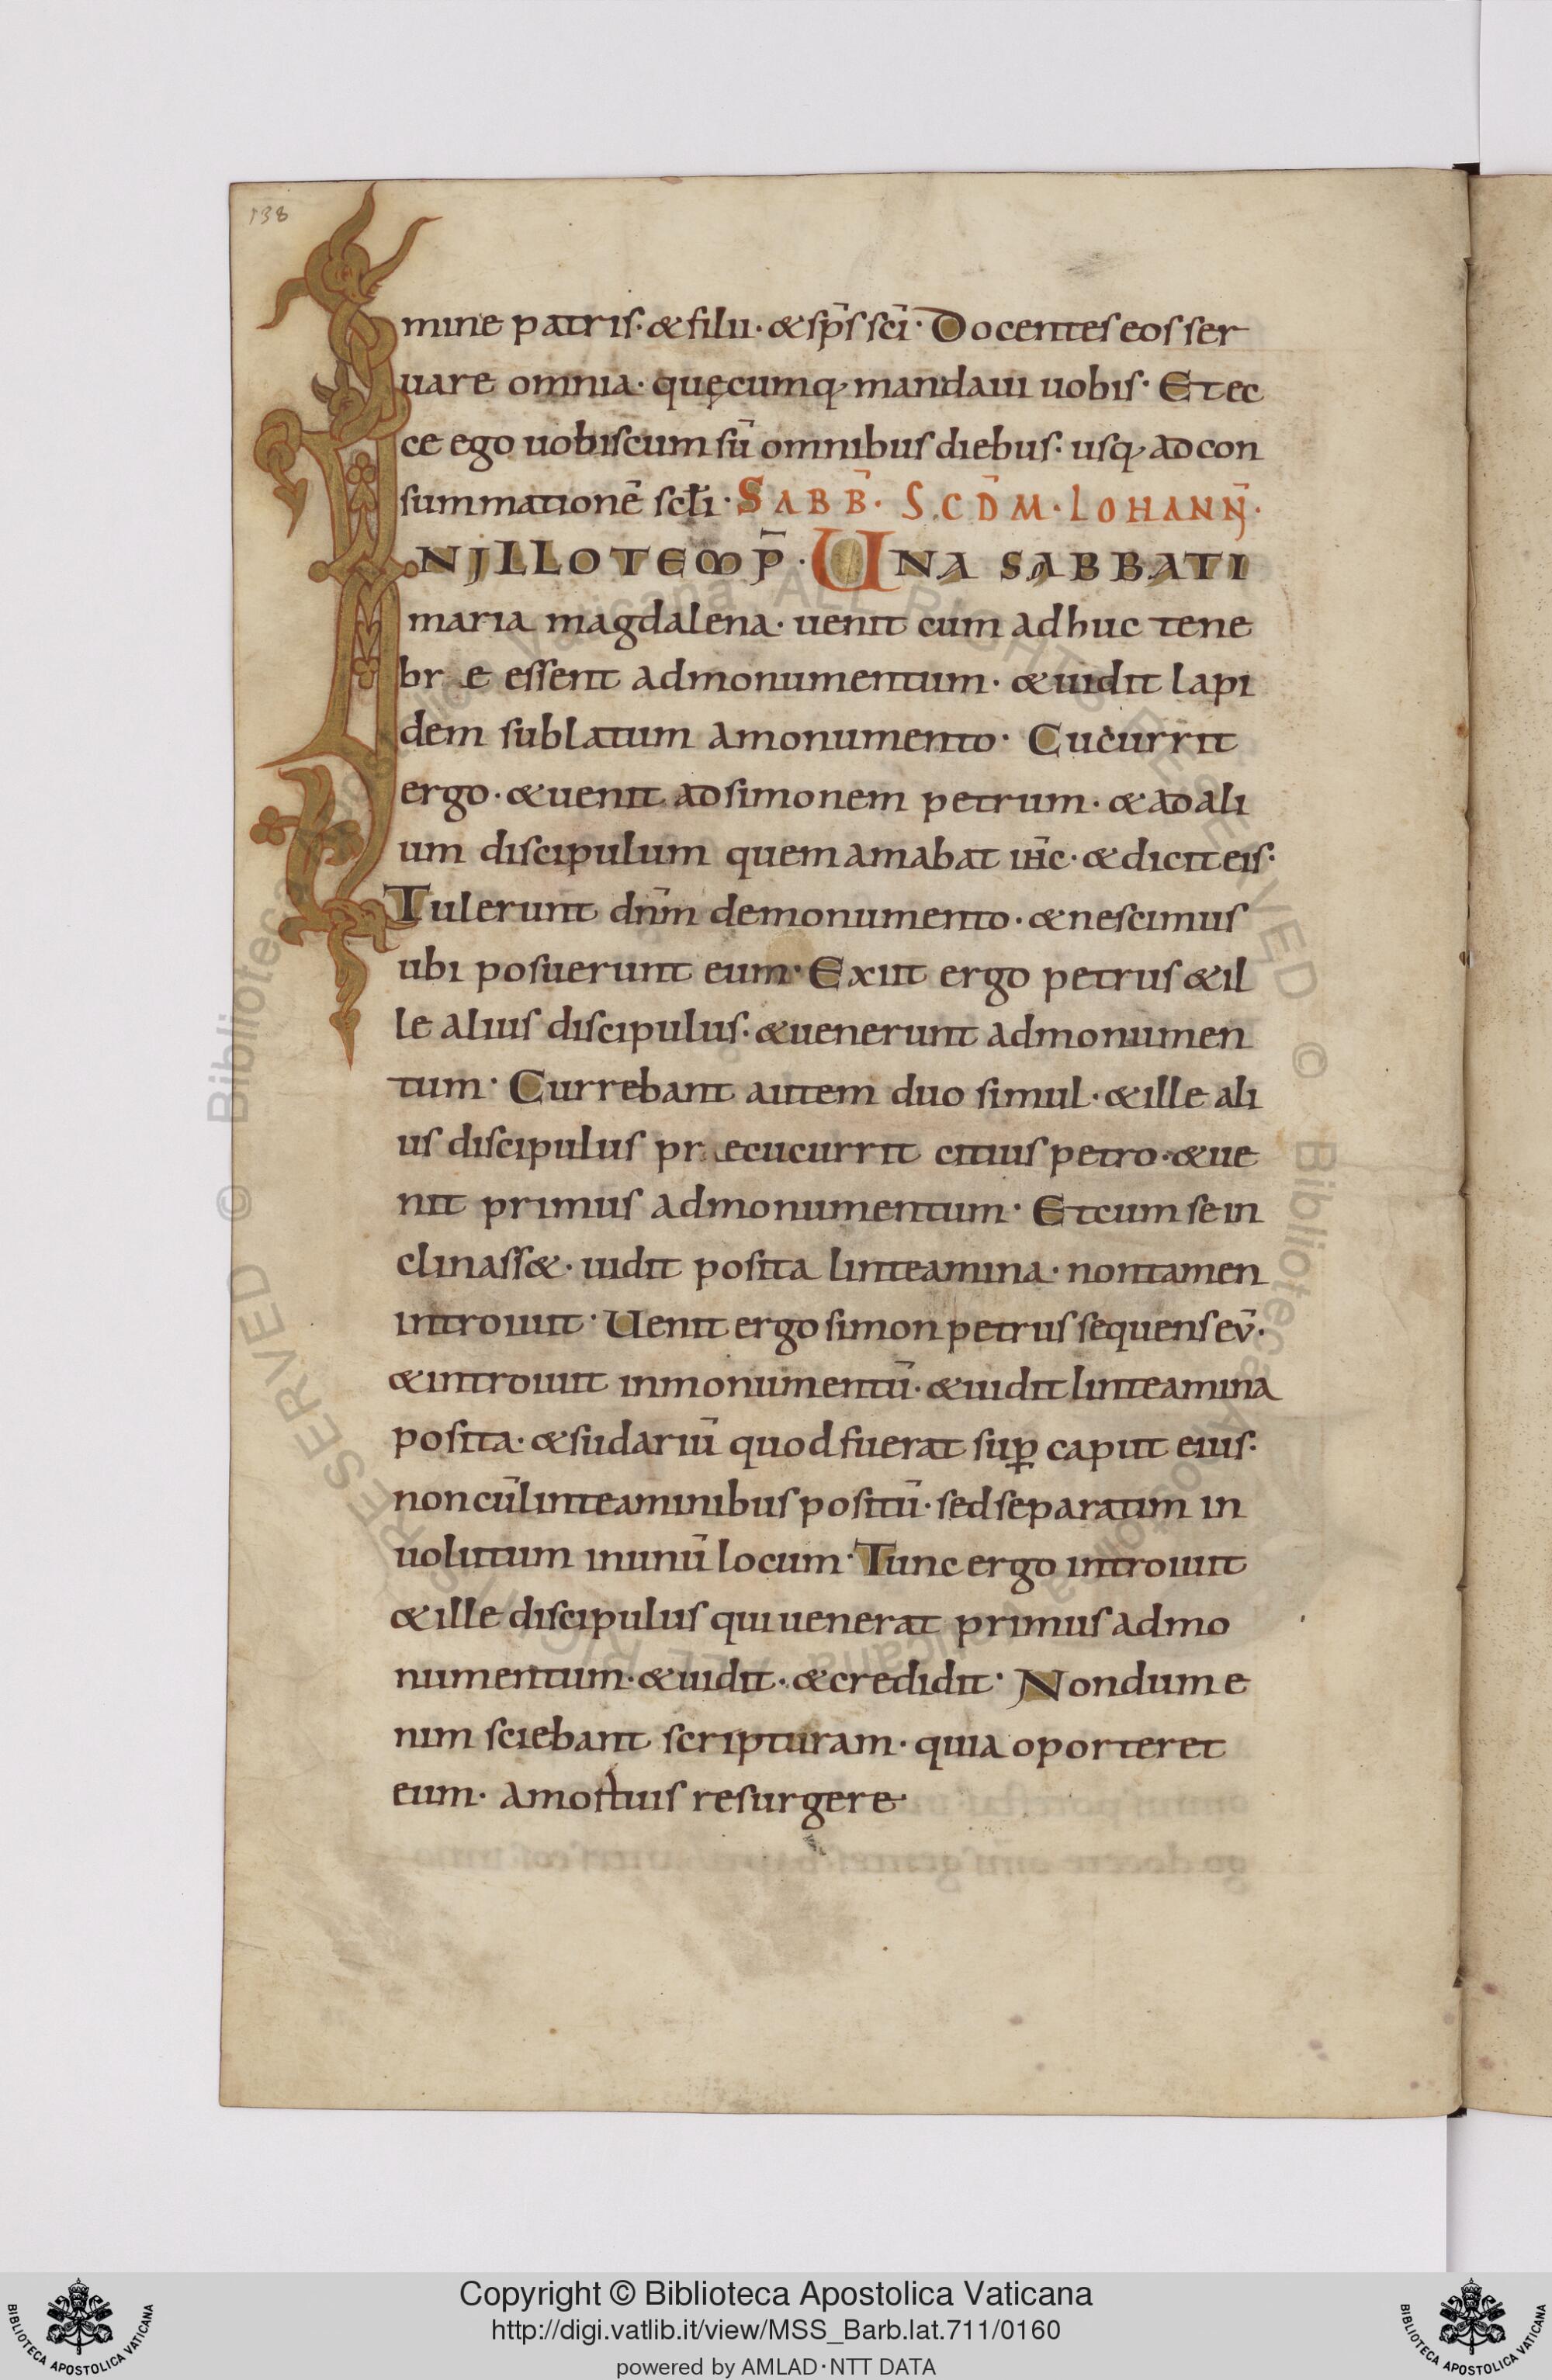 138
mine patris· & filii· & sp̄s sc̄i· Docentes eos ser
uare omnia· quęcumq· mandaui uobis· Et ec
ce ego uobiscum sū omnibus diebus· usq· ad con
summationē scłi· SABB̄· SCD̄M· IOHANN̄·
IN ILLO TEMP̄· UNA SABBATI
maria magdalena· uenit cum adhuc tene
br e essent ad monumentum· & uidit lapi
dem sublatum a monumento· Cucurrit
ergo· & uenit ad simonem petrum· & ad ali
um discipulum quem amabat ih̄c· & dicit eis·
Tulerunt dn̄m de monumento· & nescimus
ubi posuerunt eum· Exiit ergo petrus & il
le alius discipulus· & uenerunt ad monumen
tum· Currebant autem duo simul· & ille ali
us discipulus pr ecucurrit citius petro· & ue
nit primus ad monumentum· Et cum se in
clinass&· uidit posita linteamina· non tamen
introiuit· Uenit ergo simon petrus sequens eū·
& introiuit in monumentū· & uidit linteamina
posita· & sudariū quod fuerat suꝑ caput eius·
non cū linteaminibus positū· sed separatim in
uolutum in unū locum· Tunc ergo introiuit
& ille discipulus qui uenerat primus ad mo
numentum· & uidit· & credidit· Nondum e
nim sciebant scripturam· quia oporteret
eum· a mortuis resurgere·
Copyright © Biblioteca Apostolica Vaticana
http://digi.vatlib.it/view/MSS_Barb.lat.711/0160
powered by AMLAD·NTT DATA
BIBLIOTECA APOSTOLICA VATICANA
BIBLIOTECA APOSTOLICA VATICANA